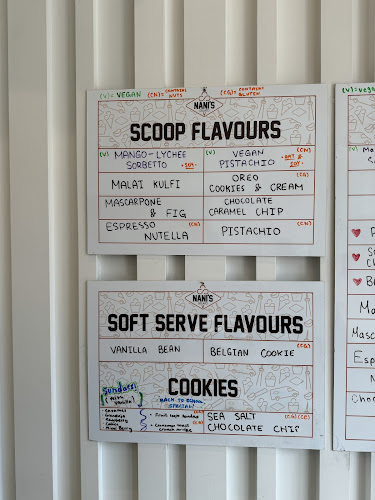 (V)= VEGAN (CN)= CONTAINS NUTS (CG)= CONTAINS GLUTEN
NANI'S
SCOOP FLAVOURS
(V) MANGO-LYCHEE SORBETTO
(V) VEGAN PISTACHIO (CN) OAT & SOY
MALAI KULFI
OREO COOKIES & CREAM (CG)
MASCARPONE & FIG
CHOCOLATE CARAMEL CHIP
ESPRESSO NUTELLA (CN)
PISTACHIO (CN)
NANI'S
SOFT SERVE FLAVOURS
VANILLA BEAN
BELGIAN COOKIE (CG)
COOKIES
Sundaes!
(with vanilla)
BACK TO SCHOOL SPECIAL!
Caramel
SEA SALT CHOCOLATE CHIP (CG)
(V)= vega